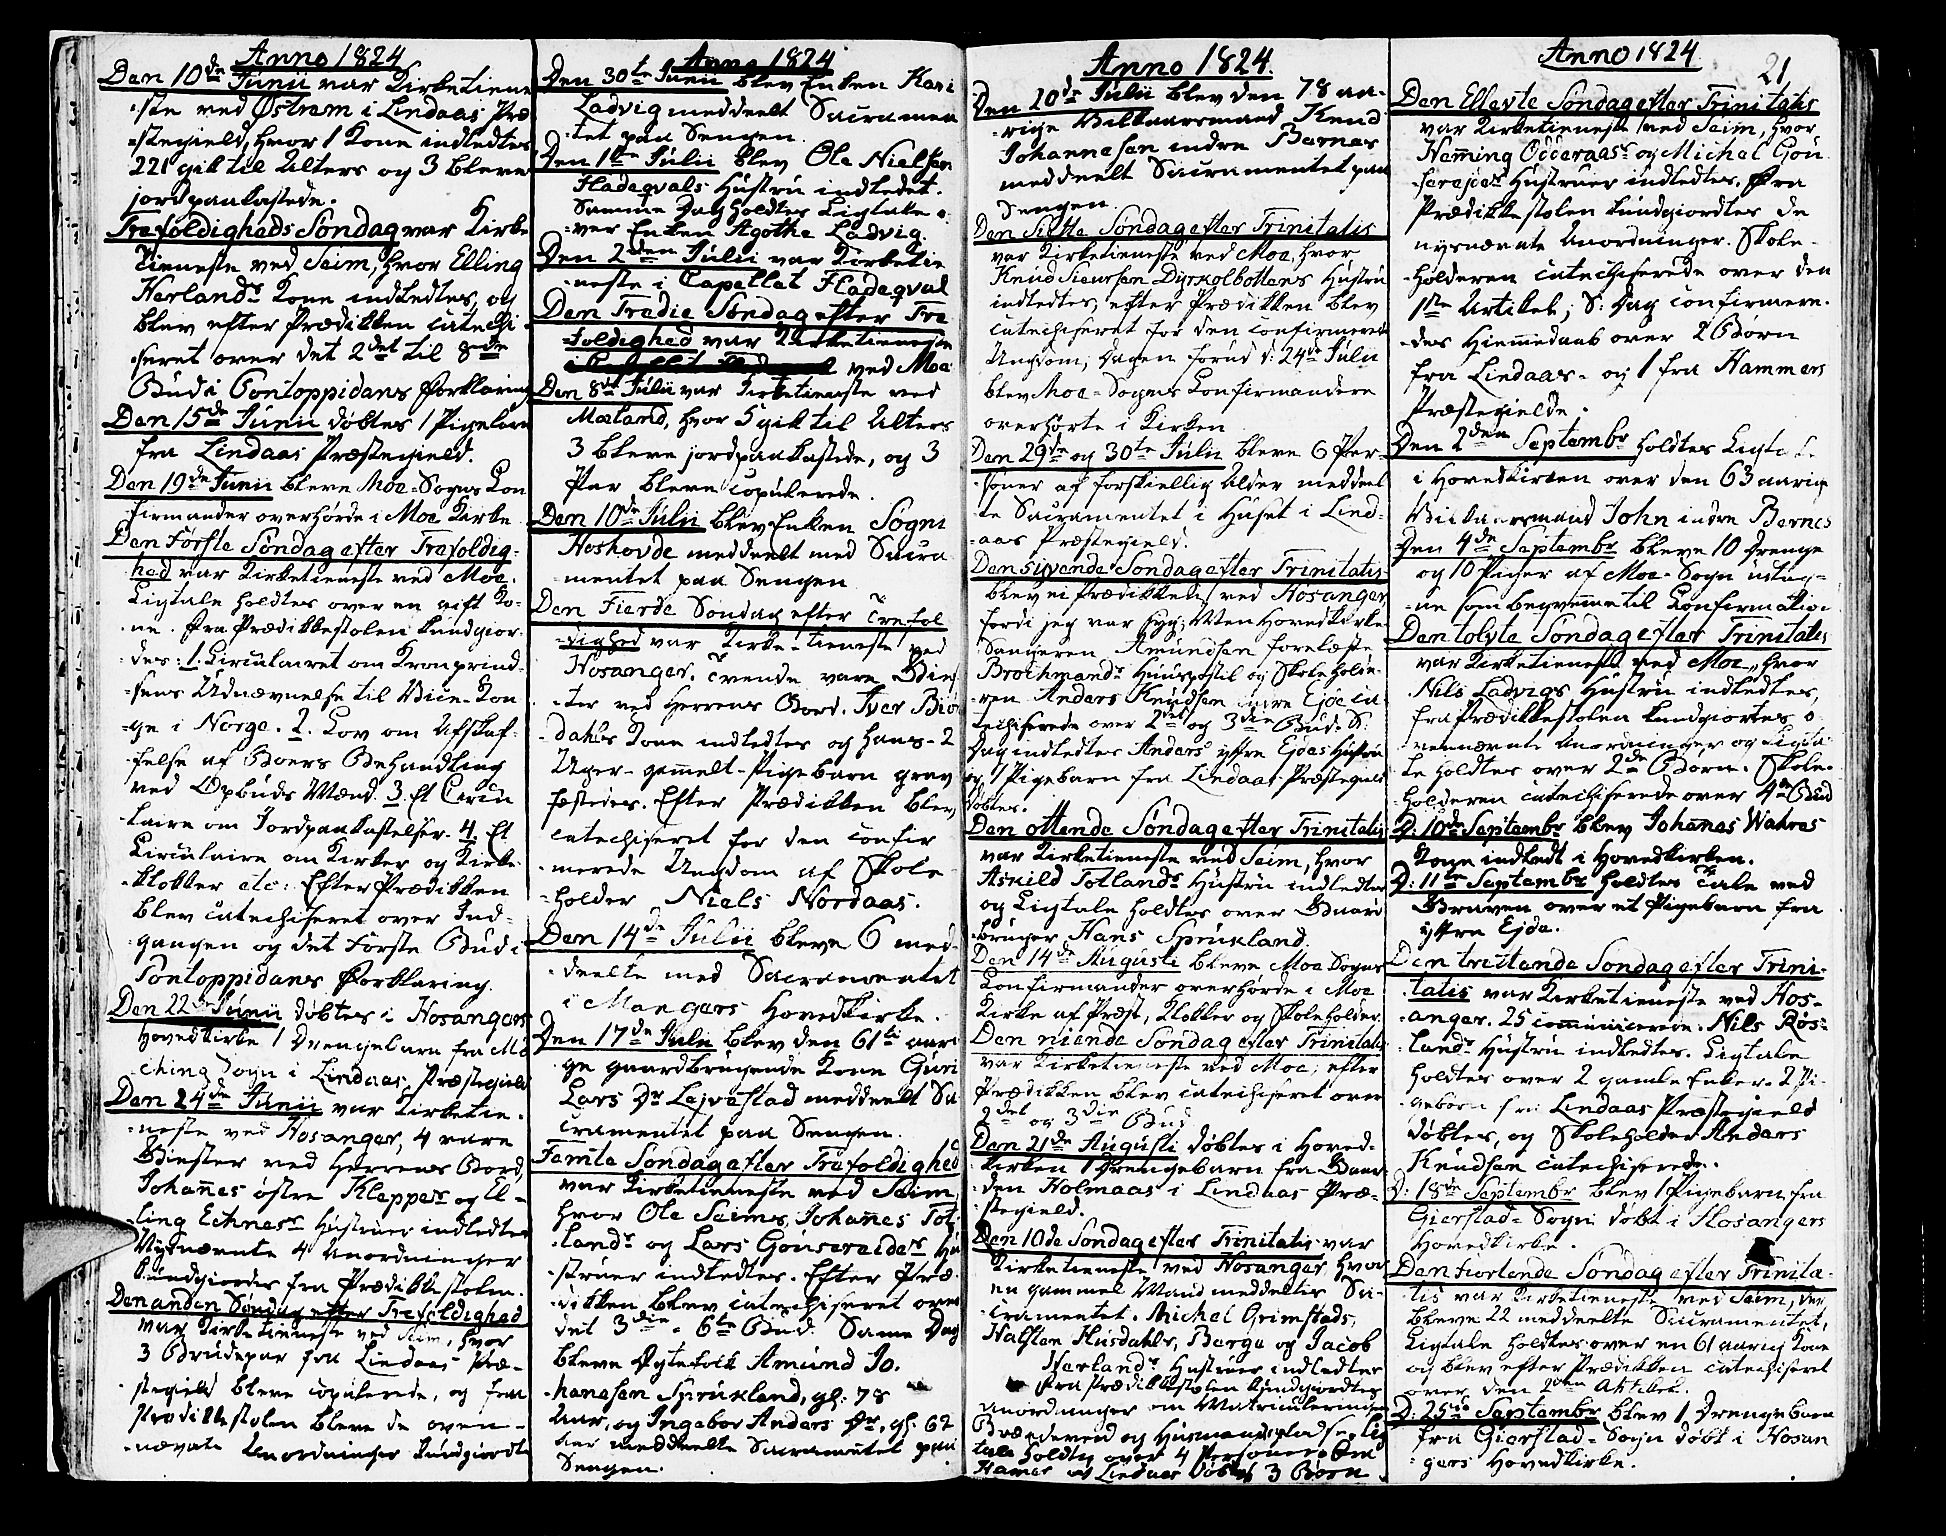 Anno 1824
Den 10de Junii var Kirketiene
ste ved Østrem i Lindaas Præ
stegield, hvor 1 Kone indledtes
221 gik til Alters og 3 bleve
jordpaakastede.
Trefoldigheds Søndag var Kirke
tieneste ved Seim, hvor Elling
Herlands Kone indledtes, og
blev efter Prædikken catechi-
seret over det 2det til 8de
Bud i Pontoppidans Forklaring
Den 15de Junii døbtes 1 Pigebarn
fra Lindaas Præstegield.
Den 19de Junii bleve Moe-Sogns Con
firmander overhørde i Moe Kirke
Den Første Søndag efter Trefoldig-
hed var Kirketieneste ved Moe.
Ligtale holdtes over en gift Ko-
ne. Fra Prædikkestolen kundgior-
des: 1. Circulairet om Kronprind-
sens Udnævnelse til Vice-Kon
ge i Norge. 2. Lov om Afskaf-
felse af Boers Behandling
ved Opbuds Mænd. 3. Et Circu
laire om Jordpaakastelser. 4. Et
Circulaire om Kirker og Kirke
klokker etc: Efter Prædikken
blev catechiseret over Ind-
gangen og det første Bud i
Pontoppidans Forklaring.
Den 22de Junii døbtes i Hosangers
Hovedkirke 1 Drengebarn fra My
ching Sogn i Lindaas Præstegield
Den 24de Junii var Kirketie-
neste ved Hosanger, 4 vare
Giester ved Herrens Bord,
Johannes østre Kleppes og El-
ling Echnes Hustruer indledtes
Nysnævnte 4 Anordninger
kundgiordes fra Prædikkestolen.
Den anden Søndag efter Trefoldighed
var Kirketieneste ved Seim, hvor
3 Brudepar fra Lindaas Præ-
stegield bleve copulerede, og fra
Prædikkestolen bleve de oven-
nævnte Anordninger kundgiordte
Anno 1824
Den 30te Junii blev Enken Kari
Ladvig meddeelt Sacramen
tet paa Sengen.
Den 1te Julii blev Ole Nielsen
Fladeqvals Hustru indledet.
Samme Dag holdtes Ligtale o-
ver Enken Agothe Ladvig.
Den 2den Julii var Kirketie
neste i Capellet Fladeqval
Den Tredie Søndag efter Tre
foldighed var Kirketieneste
ved Moe
Den 8de Julii var Kirketieneste ved
Mæland, hvor 5 gik til Alters
3 bleve jordpaakastede, og 3
Par bleve copulerede.
Den 10de Julii blev Enken Sogni
Hoshovde meddeelt med Sacra
mentet paa Sengen
Den Fierde Søndag efter Trefol
dighed var Kirke-tieneste ved
Hosanger. Trende vare Gies
ter ved Herrens Bord. Iver Biø
Dahls Kone indledtes og hans 2
Uger-gammelt-Pigebarn grav
fæstedes. Efter Prædikken blev
catechiseret for den confir
merede Ungdom af Skole-
holder Niels Nordaas.
Den 14de Julii bleve 6 med-
deelte med Sacramentet
i Mangers Hovedkirke.
Den 17de Julii blev den 61ti aari
ge gaardbrugende Kone Guri
Lars Dr Lejvestad meddeelt Sa
cramentet paa Sengen.
Femte Søndag efter Trefoldighed
var Kirketieneste ved Seim,
hvor Ole Seims, Johannes Tot-
lands og Lars Gonsereides Hu
struer indledtes. Efter Præ-
dikken blev catechiseret over
det 3die - 6te Bud. Samme Dag
bleve Ægtefolk Amund Jo-
hanesen Sprukland, gl: 78
Aar, og Ingebor Anders Dr, gl: 62
Aar meddeelte Sacramentet paa
Sengen.
Anno 1824.
Den 20de Julii blev den 78 aa-
rige Vilkaarsmand Knud
Johannesen indre Bernes
meddeelt Sacramentet paa
Sengen.
Den Siette Søndag efter Trinitatis
var Kirketieneste ved Moe, hvor
Knud Siursen Dyrkolbottens Hustru
indledtes, efter Prædikken blev
catechiseret for den confirmerede
Ungdom, Dagen forud d: 24de Julii
blev Moe-Sogns Confirmandere
overhørte i Kirken
Den 29de og 30te Julii bleve 6 Per-
soner af forskiellig Alder meddeel
te Sacramentet i Huset i Lind-
aas Præstegield.
Den Syvende Søndag efter Trinitatis
blev ei Prædikken ved Hosanger
fordi jeg var syg; Men Hovedkirke
Sangeren Amundsen forelæste
Brochmands Huuspostil og Skoleholde-
ren Anders Knudsen indre Ejde ca-
techiserede over 2det og 3die Bud. S:
Dag indledtes Anders yttre Ejdes Hustru
og 1 Pigebarn fra Lindaas Præstegield
døbtes.
Den ottende Søndag efter Trinitatis
var Kirketieneste ved Seim, hvor
Askild Totlands Hustru indledtes
og Ligtale holdtes over Gaard
bruger Hans Sprukland.
Den 14de Augusti bleve Moe Sogns
Confirmander overhørde i Moe
Kirke af Præst, Klokker og Skoleholder.
Den niende Søndag efter Trinitatis
var Kirketieneste ved Moe, efter
Prædikken blev catechiseret over
2det og 3die Bud
Den 21de Augusti døbtes i Hoved-
kirken 1 Drengebarn fra Gaar
den Holmaas i Lindaas Præ-
stegield.
Den 10de Søndag efter Trinitatis var
Kirketieneste ved Hosanger, hvor
en gammel Mand meddeeltes Sa-
cramentet. Michel Grimstads,
Halsten Husdahls, Berge og Jacob
Nerlands Hustruer indledtes
Fra Prædikkestolen kundgiordtes
anordninger om Matriculeringen
Brændeveed og Husmandspladse Lig
tale holdtes over 4 Personer. Om
Hamer og Lindaas døbtes 3 Børn
Anno 1824. 21
Den Ellevte Søndag efter Trinitatis
var Kirketieneste ved Seim, hvor
Heming Odderaas og Michel Gon
serejdes Hustruer indledtes. Fra
Prædikkestolen kundgiordtes de
nysnævnte Anordninger. Skole-
holderen catechiserede over den
1ste Artikel; S: Dag confirmere-
des Hiemmedaab over 2 Børn
fra Lindaas- og 1 fra Hammers
Præstegield.
Den 2den Septembr holdtes Ligtale
i Hovedkirken over den 63 aarige
Vilkaarsmand John indre Bernes
Den 4de Septembr bleve 10 Drenge
og 10 Piger af Moe-Sogn antag-
ne som beqvemme til Confirmation
Den tolvte Søndag efter Trinitatis
var Kirketieneste ved Moe, hvor
Nils Ladvigs Hustru indledtes,
fra Prædikkestolen kundgiortes o-
vennævnte Anordninger og Ligta-
le holdtes over 2de Børn. Skole-
holderen catechiserede over 4de Bud
D: 10de Septembr blev Johannes Wahres
Kone indledt i Hovedkirken.
D: 11te Septembr holdtes Tale ved
Graven over et Pigebarn fra
yttre Ejde.
Den trettende Søndag efter Trini-
tatis var Kirketieneste ved Hos-
anger. 25 communicerede. Nils Røs-
lands Hustru indledtes. Ligtale
holdtes over 2 gamle Enker. 2 Pi-
geborn fra Lindaas Præstegield
døbtes, og Skoleholder Anders
Knudsen catechiserede.
D: 18de Septembr blev 1 Pigebarn fra
Gierstad-Sogn døbt i Hosangers
Hovedkirke.
Den fiortende Søndag efter Trinita-
tis var Kirketieneste ved Seim, der
bleve 22 meddeelte Sacramentet,
Ligtale holdtes over en 61 aarig Kone
og blev efter Prædikken catechiseret
over den 2den Artikel.
D: 25de Septembr blev 1 Drengebarn
fra Gierstad-Sogn døbt i Hosan
gers Hovedkirke.